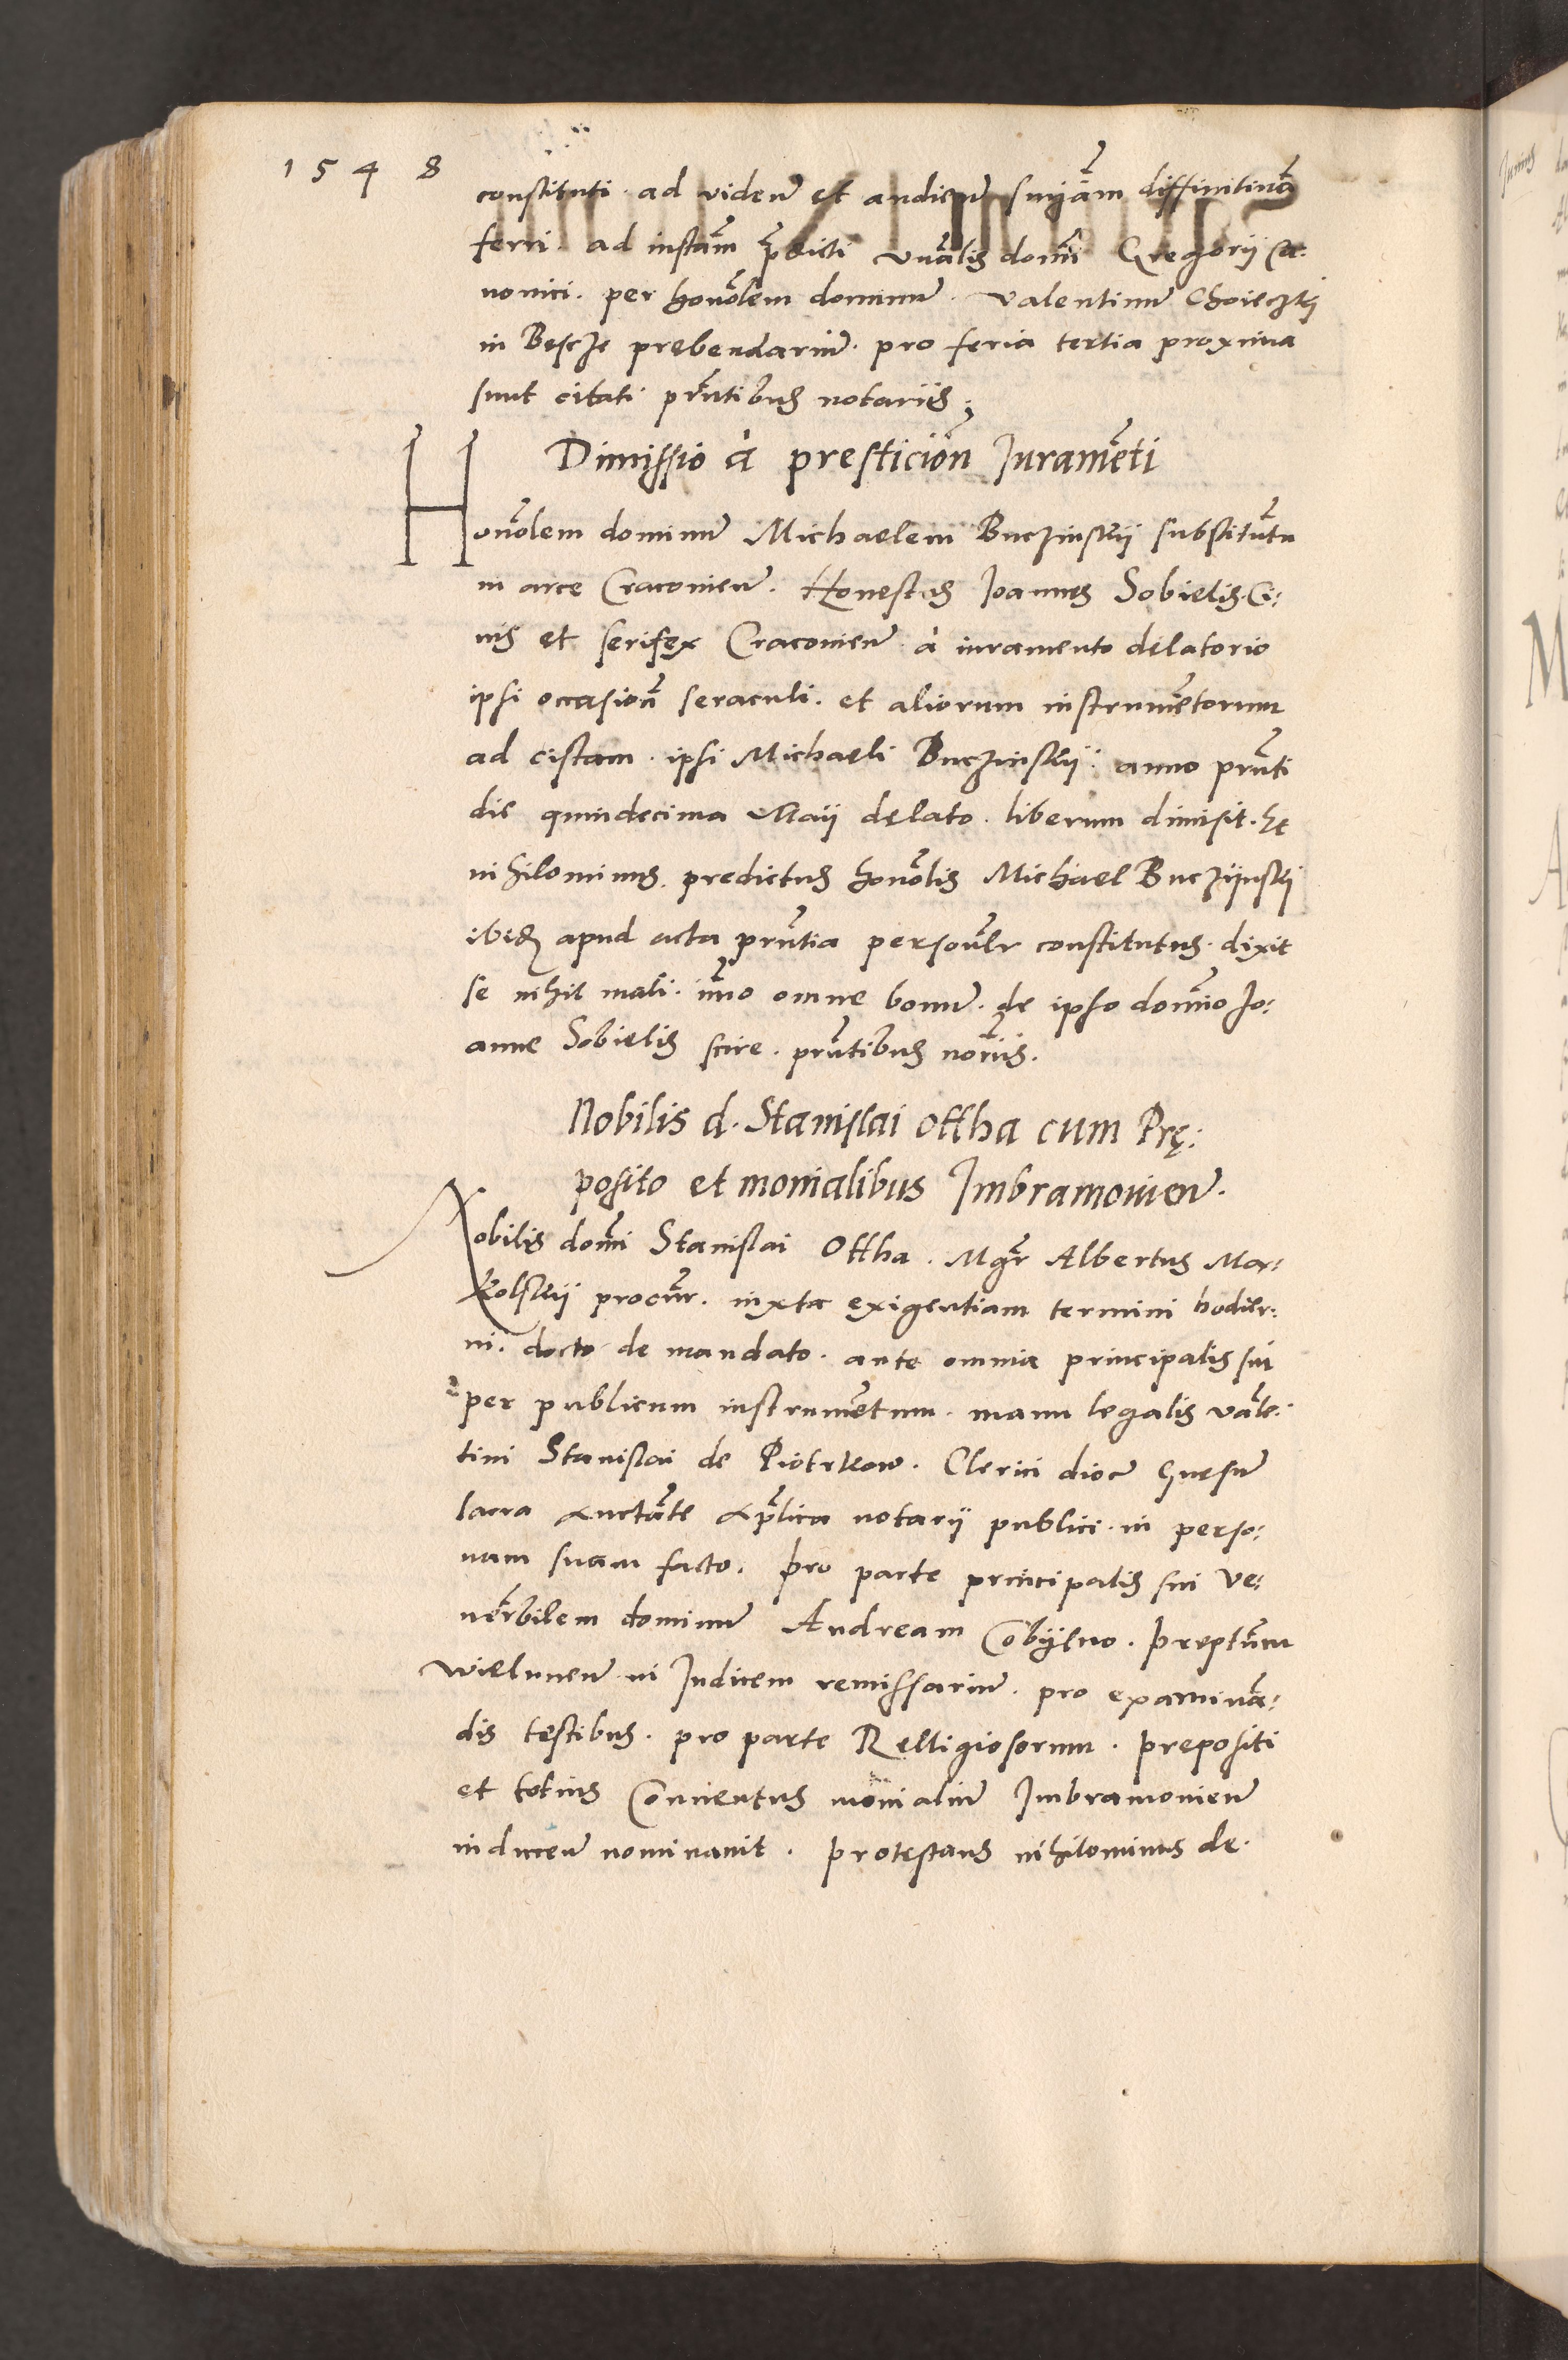 1548
constituti. ad viden̄ et audien̄ sn̄iam diffinitiuā
ferri. ad instam p̄dicti vn̄alis domi Gregorij Ca:
nonici. per honōlem dominū. Valentinū Choieczkj
in Biecze prebendariū. pro feria tertia proxima
sunt citati pn̄tibus notariis:
Dimissio à presticioñ Iuramēti
Honōlem dominū Michaelem Buczinskij substitutū
in arce Cracouien̄. Honestus Ioannes Sobielis Ci:
uis et serifex Cracouien̄. à iuramento delatorio
ipsi occasioñ seraculi. et aliorum instrumētorum
ad cistam. ipsi Michaeli Buczinskij. anno pn̄ti
die quindecima Maij delato. liberum dimisit. Et
nihilominus. predictus honōlis Michael Buczijnskj
ibidē apud acta pn̄tia persoñlr constitutus. dixit
se nihil mali. imo omne bonū. de ipso domīo Io:
anne Sobielis scire. pn̄tibus noriis.
Nobilis d. Stanislai Offha cum Prę:
posito et monialibus Imbramouien̄.
Nobilis domī Stanislai Offha. Mgr̄ Albertus Mar:
kolskij procūr. iuxta exigentiam termini hodier:
ni. docto de mandato. ante omnia principalis sui
per publicum instrumētum. manu legalis Valē:
tini Stanislai de Piotrkow. Clerici dioc̄ Gnesn̄
sacra auctāte ap̄lica notarij publici. in perso:
nam suam facto. pro parte principalis sui Ve:
nērbilem dominū Andream Cobijlno. preptūm
Wielunen̄. in Iudicem remissariū. pro examinā:
dis testibus. pro parte Relligiosorum. prepositi
et totius Conuentus monialiū Imbramouien̄
inducen̄ nominauit. protestans nihilominus de.